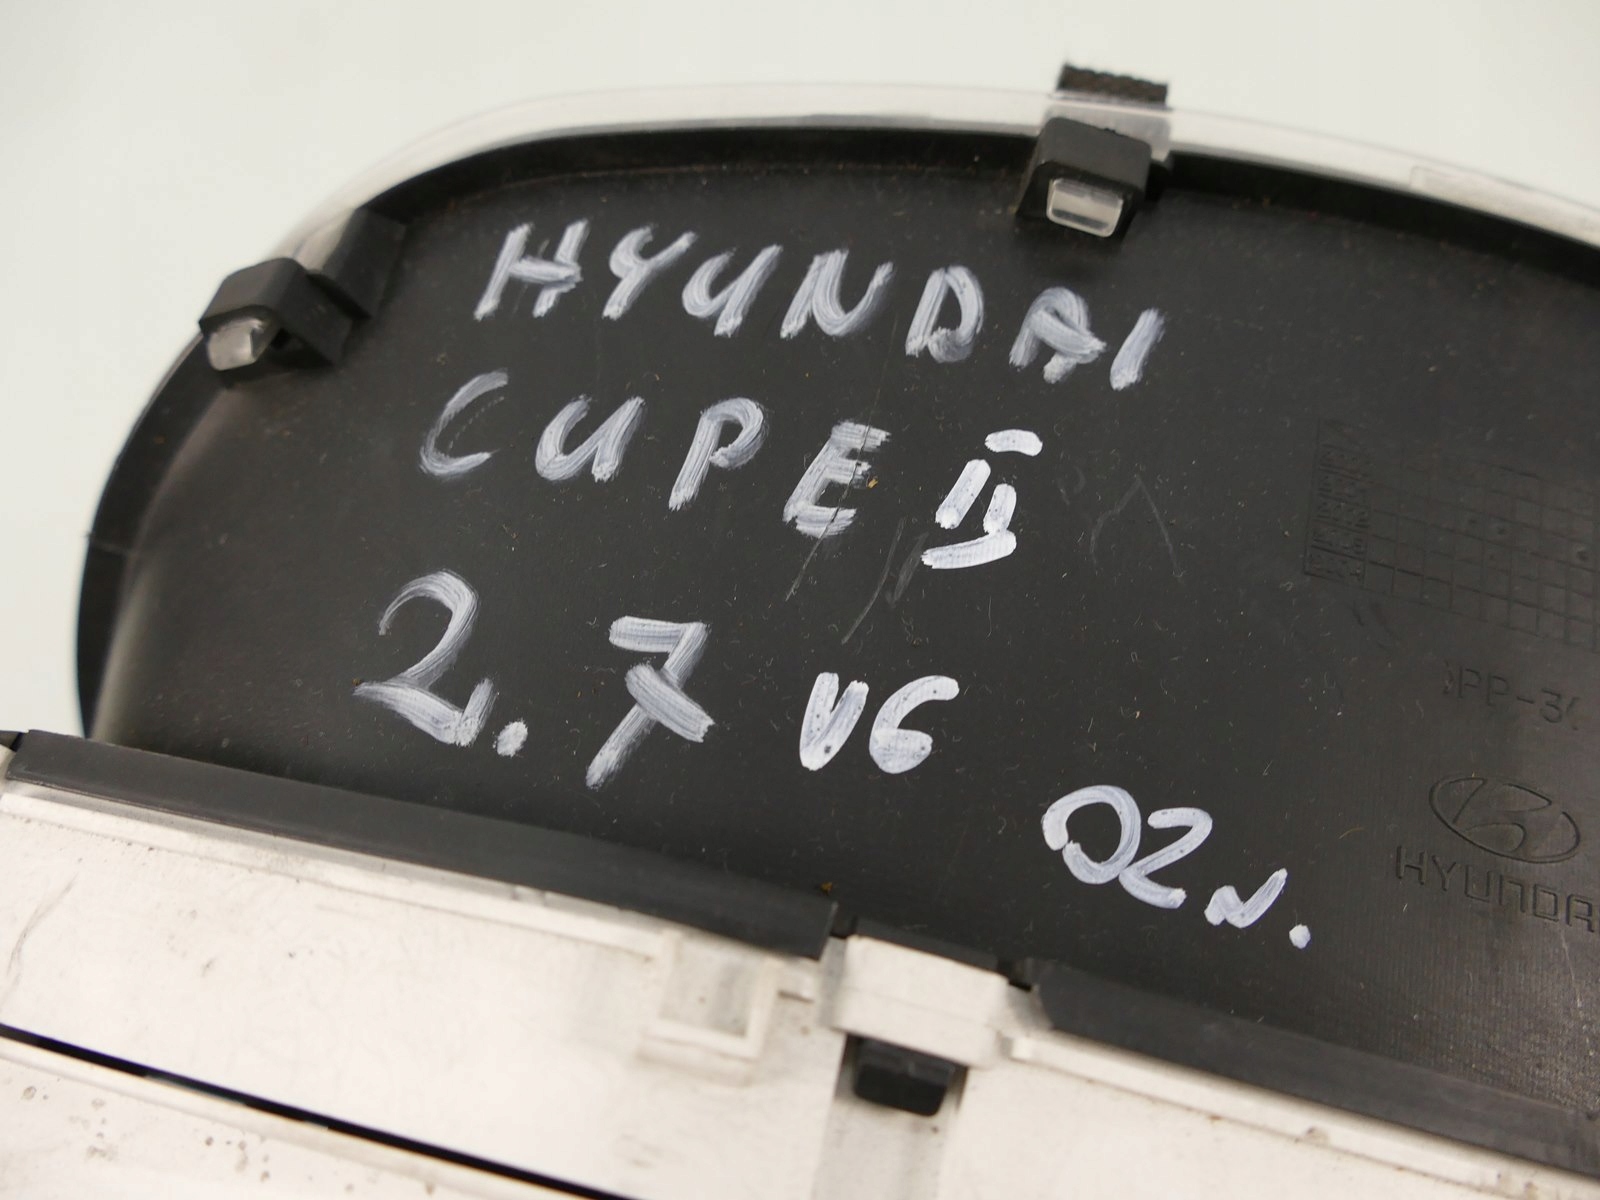 HYUNDAI
CUPE II
2.7 V6
02r.
HYUNDAI